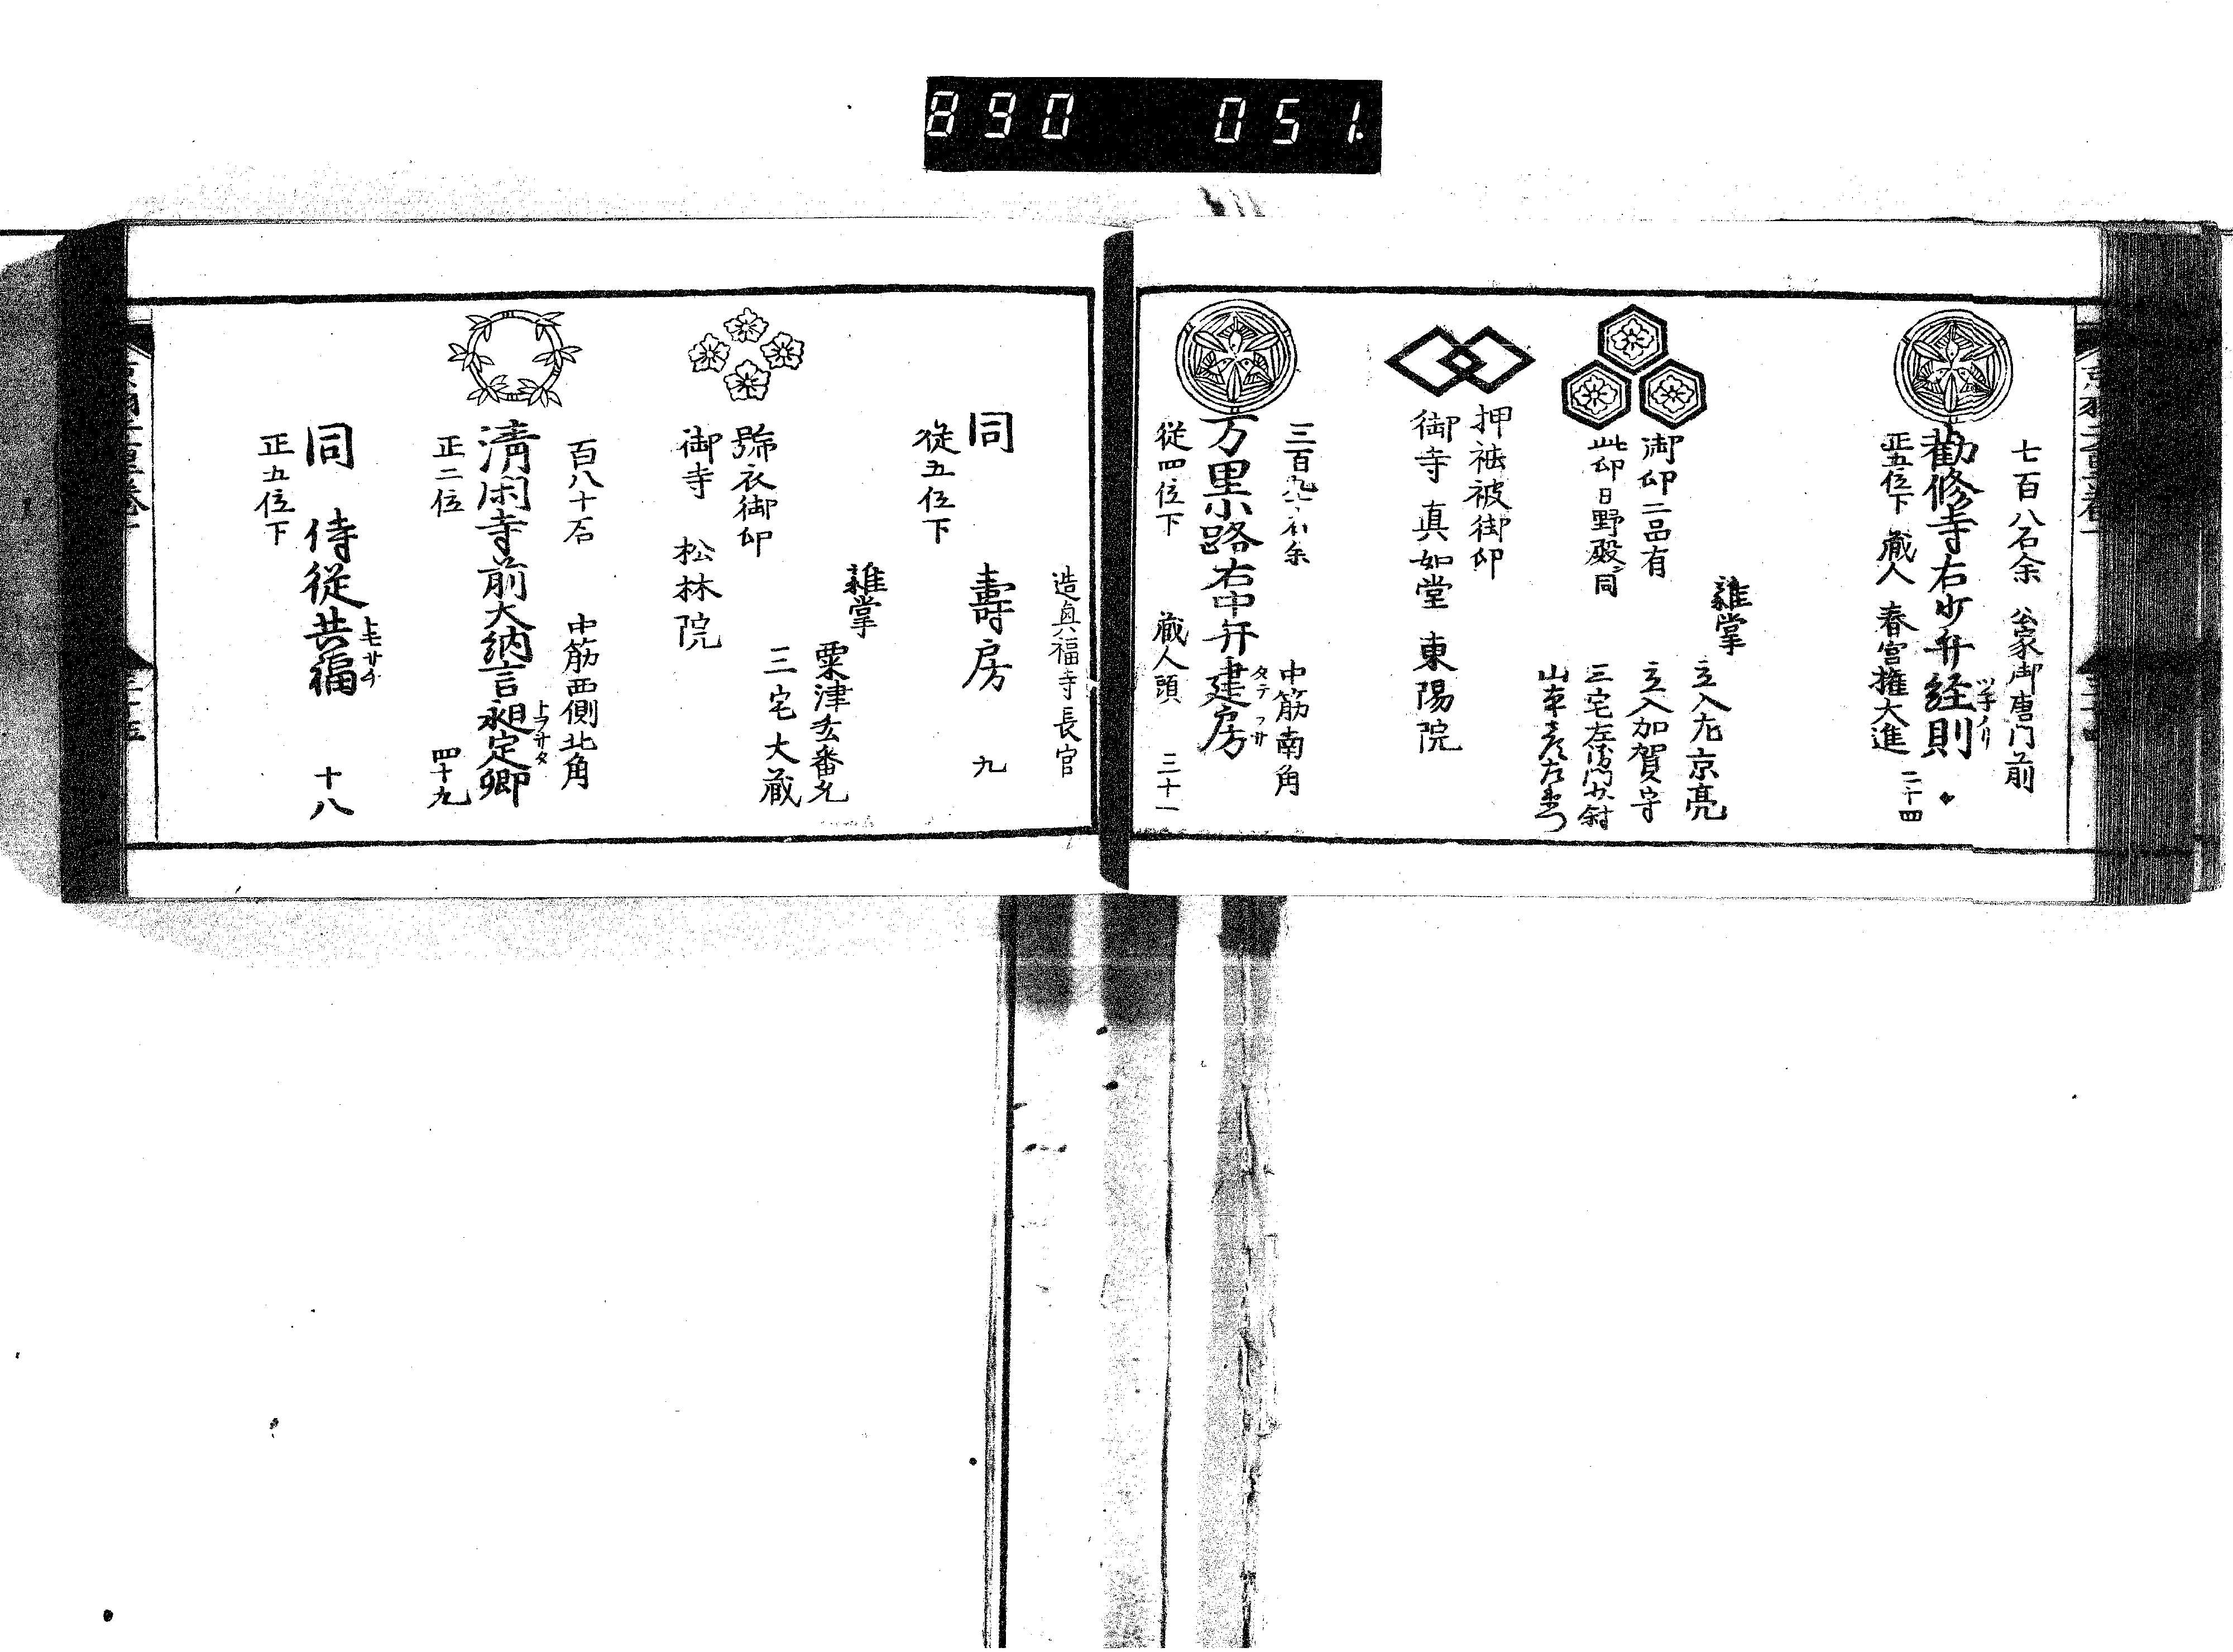 890 051.
七百八石余 公家御唐門前
勧修寺右少弁経則
ツネノリ
正五位下 蔵人 春宮権大進 二十四
雑掌
立入左京亮
立入加賀守
三宅左衛門少尉
御印二品有
此印日野殿ニ同
押袪被御印
御寺 真如堂 東陽院
三百九十石余 中筋南角
万里小路右中弁建房
タテフサ
従四位下 蔵人頭 三十一
造興福寺長官
同 壽房 九
従五位下
雑掌
粟津玄番允
三宅大蔵
號衣御印
御寺 松林院
百八十石 中筋西側北角
清閑寺前大納言昶定卿
トヲサタ
正二位 四十九
同 侍従共福 十八
トモサチ
正五位下